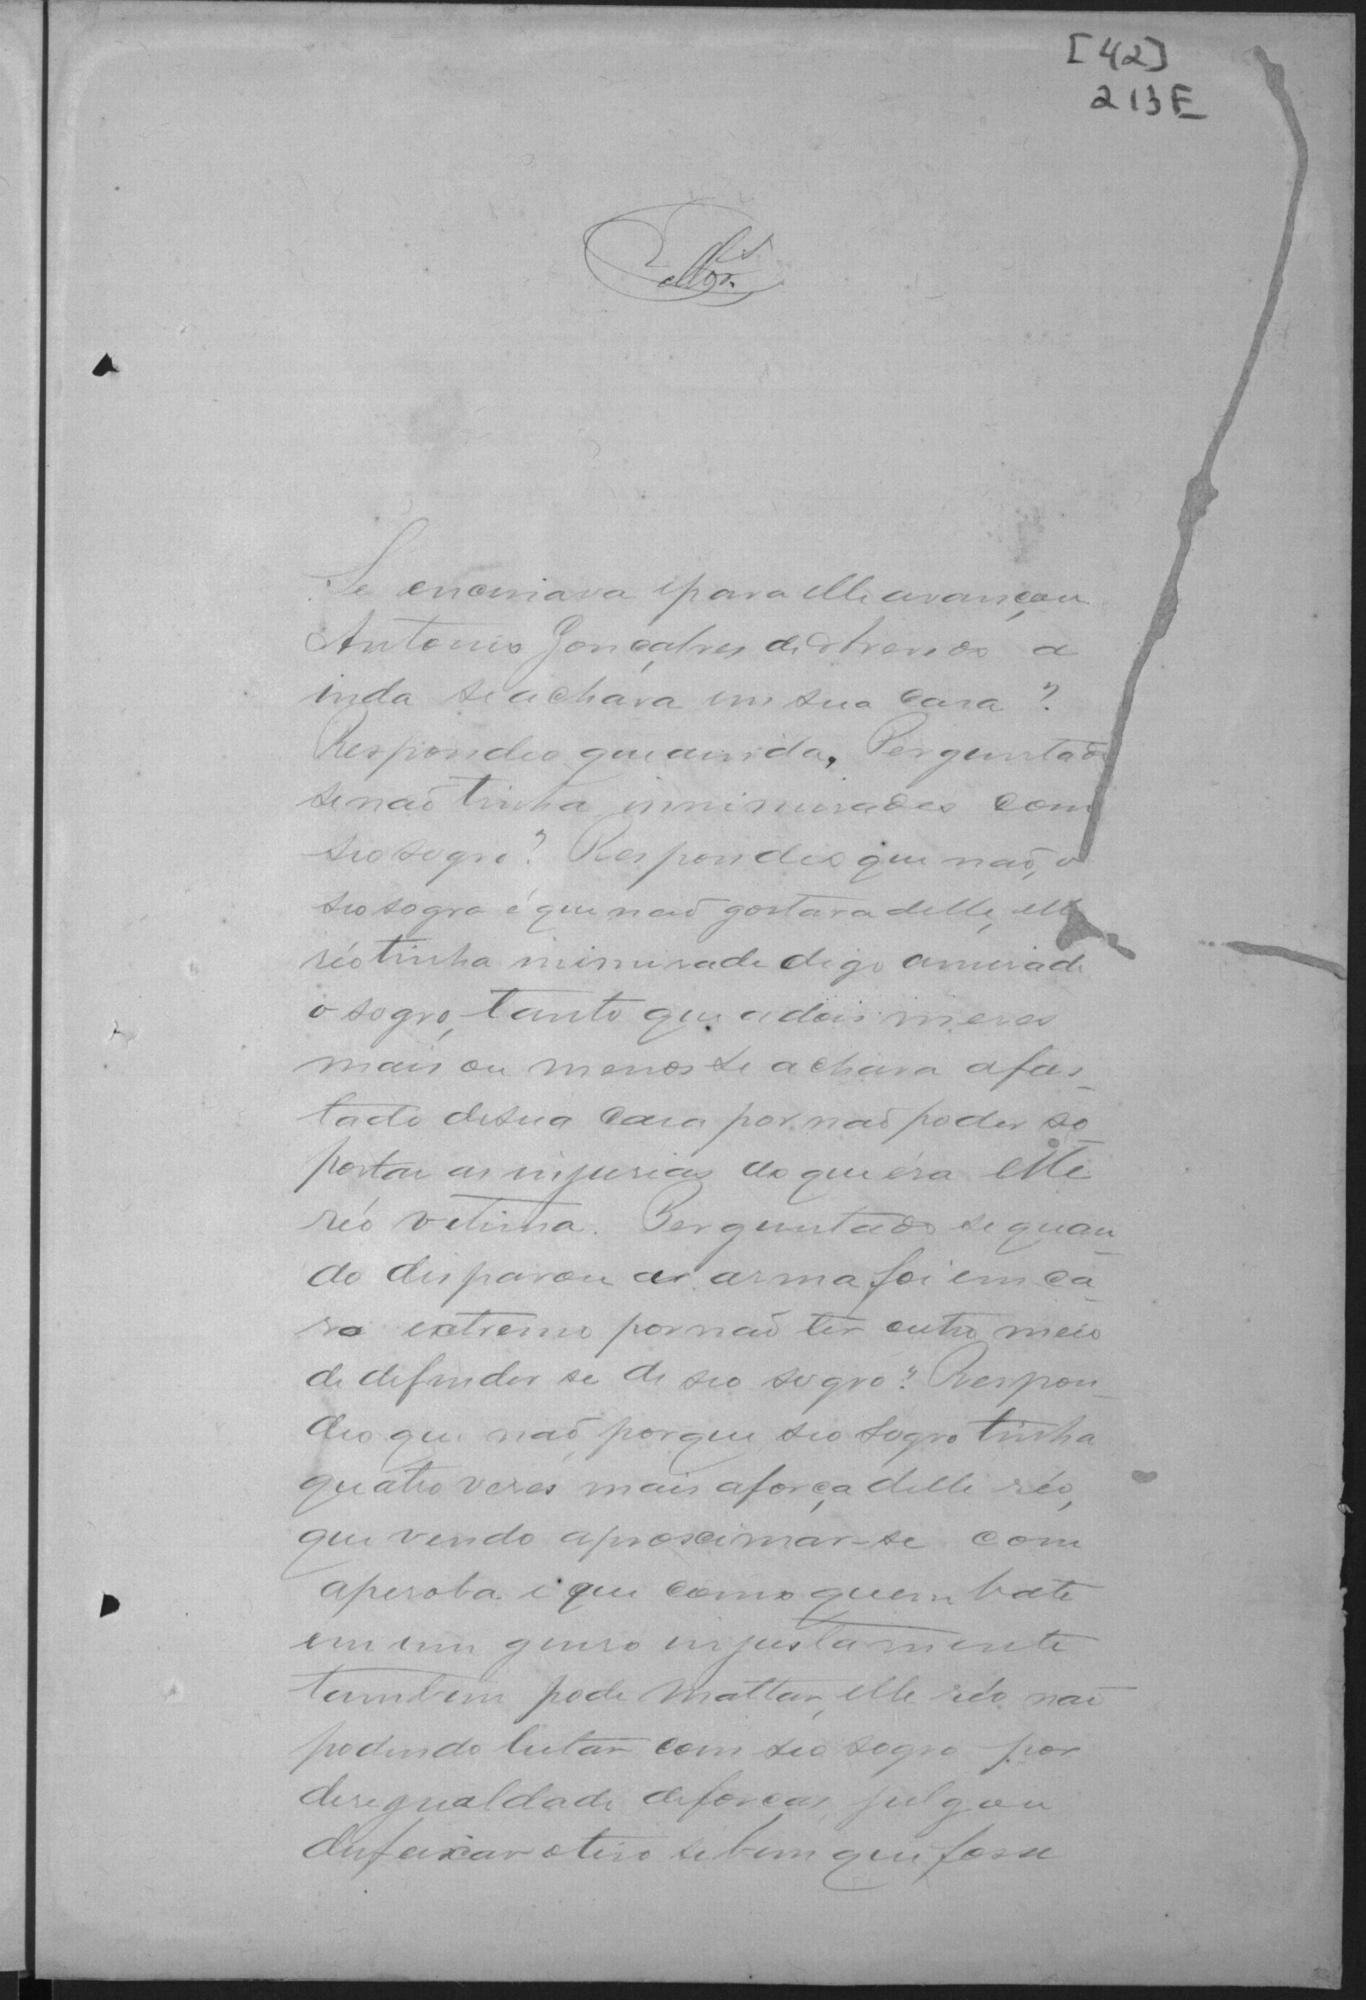 [42]
213E
Se encaminava e para elle avançou
Antonio Gonçalves de Abrenos a
inda se achava em sua casa?
Respondeo que ainda. Perguntado
se não tinha innimisades com
seo sogro? Respondeo que não, o
seo sogro é que não gostava delle, elle
réo tinha inimisade digo amisade
o sogro, tanto que a dois meses
mais ou menos se achava afas_
tado de sua casa por não poder so
portar as injurias do que éra elle
réo vitima. Perguntado se quan_
do disparou a arma foi em ca_
so extremo por não ter outro meio
de defender se de seo sogro? Respon_
deo que não, porque seo sogro tinha
quatro veses mais a força delle réo,
que vendo aproximar-se com
a peroba e que como quem bate
em um genro injustamente
tambem pode mattar, elle réo não
podendo lutar com seo sogro por
desigualdade de forças, julgou
desfeixar o tiro se bem que fosse